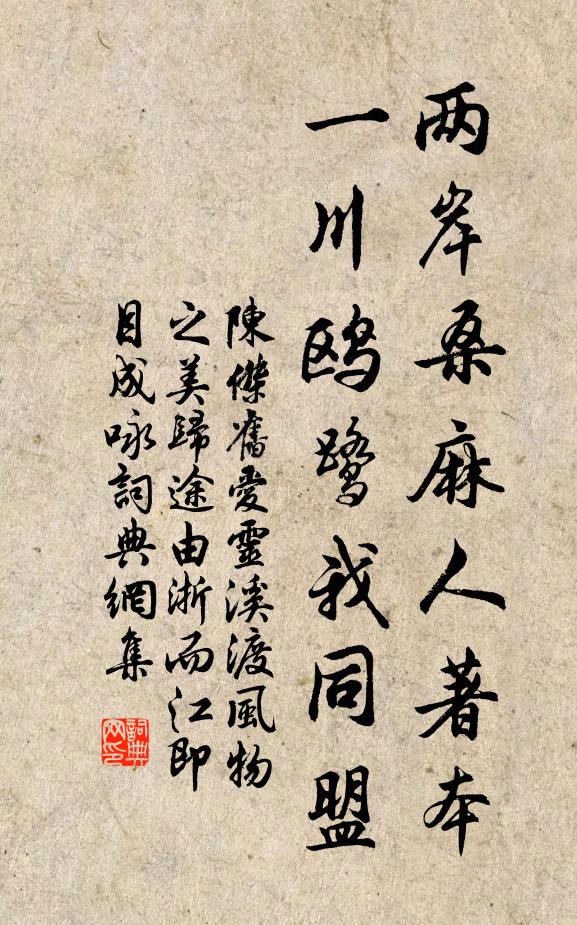 两岸桑麻人著本
一川鸥鹭我同盟
陳傑舊愛靈溪渡風物
之美歸途由浙而江即
目成咏詞典網集
詞典网印